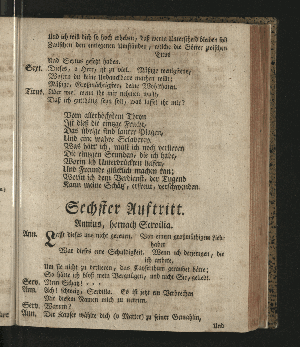 Und ich will dich so hoch erheben, daß wenig Unterscheid bleiben soll
Zwischen den entzogenen Umständen, welche die Götter zwischen
Titus
Und Sextus gesetzt haben.
Sext. Dieses, o Herr, ist zu viel. Mäßige wenigstens,
Wofern du keine Undankbare machen willt;
Mäßige, Großmächtigster, deine Wohlthaten.
Titus, Aber wie, wenn ihr mir nehmet,
Daß ich gutthätig seyn soll, was lasset ihr mir?
Vom allerhöchsten Thron
Ist dieß die einzige Frucht.
Das übrige sind lauter Plagen,
Und eine wahre Sclaverey.
Was hätt' ich, wenn ich noch verlieren
Die einzigen Stunden, die ich habe,
Worin ich Unterdrückten helfen,
Und Freunde glücklich machen kan;
Worin ich dem Verdienst, der Tugend
Kann meine Schätz, erfreut, verschwenden.
Sechster Auftritt.
Annius, hernach Servilia.
Ann. Laßt dieses uns nicht gereuen. Von einem großmüthigen Lieb-
haber
War dieses eine Schuldigkeit. Wenn ich derjenigen, die
ich anbete,
Um sie nicht zu verlieren, das Kayserthum geraubet hätte;
So hätte ich bloß mein Vergnügen, und nicht Sie, geliebt.
Serv. Mein Schatz! . . .
Ann. Ach! schweig, Servilia. Es ist jetzt ein Verbrechen
Mit diesem Namen mich zu nennen.
Serv. Warum?
Ann. Der Kayser wählte dich (o Marter) zu seiner Gemahlin,
Und